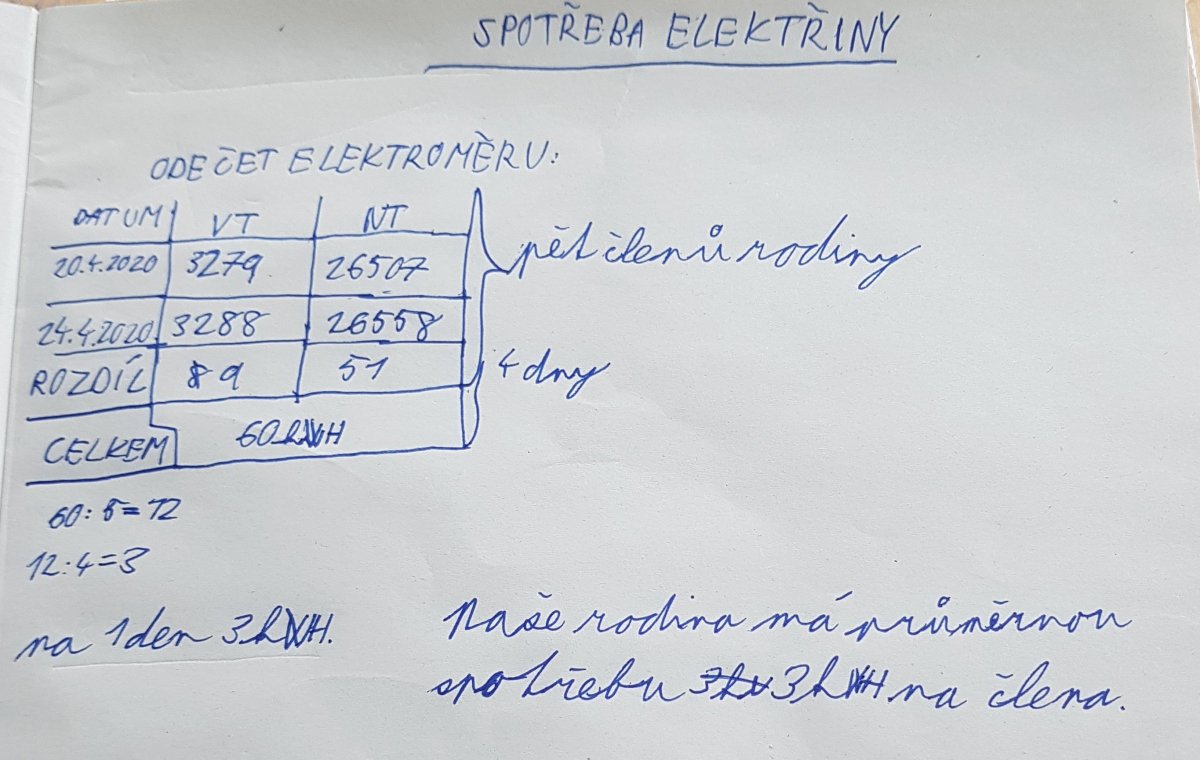 SPOTŘEBA ELEKTŘINY
ODEČET ELEKTROMĚRU:
DATUM VT NT
20.4.2020 3279 26507
pět členů rodiny
24.4.2020 3288 26558
ROZDÍL 9 51
4 dny
CELKEM 60 kWH
60:5=12
12:4=3
na 1 den 3kWH.
Naše rodina má průměrnou
spotřebu 3kWH na člena.